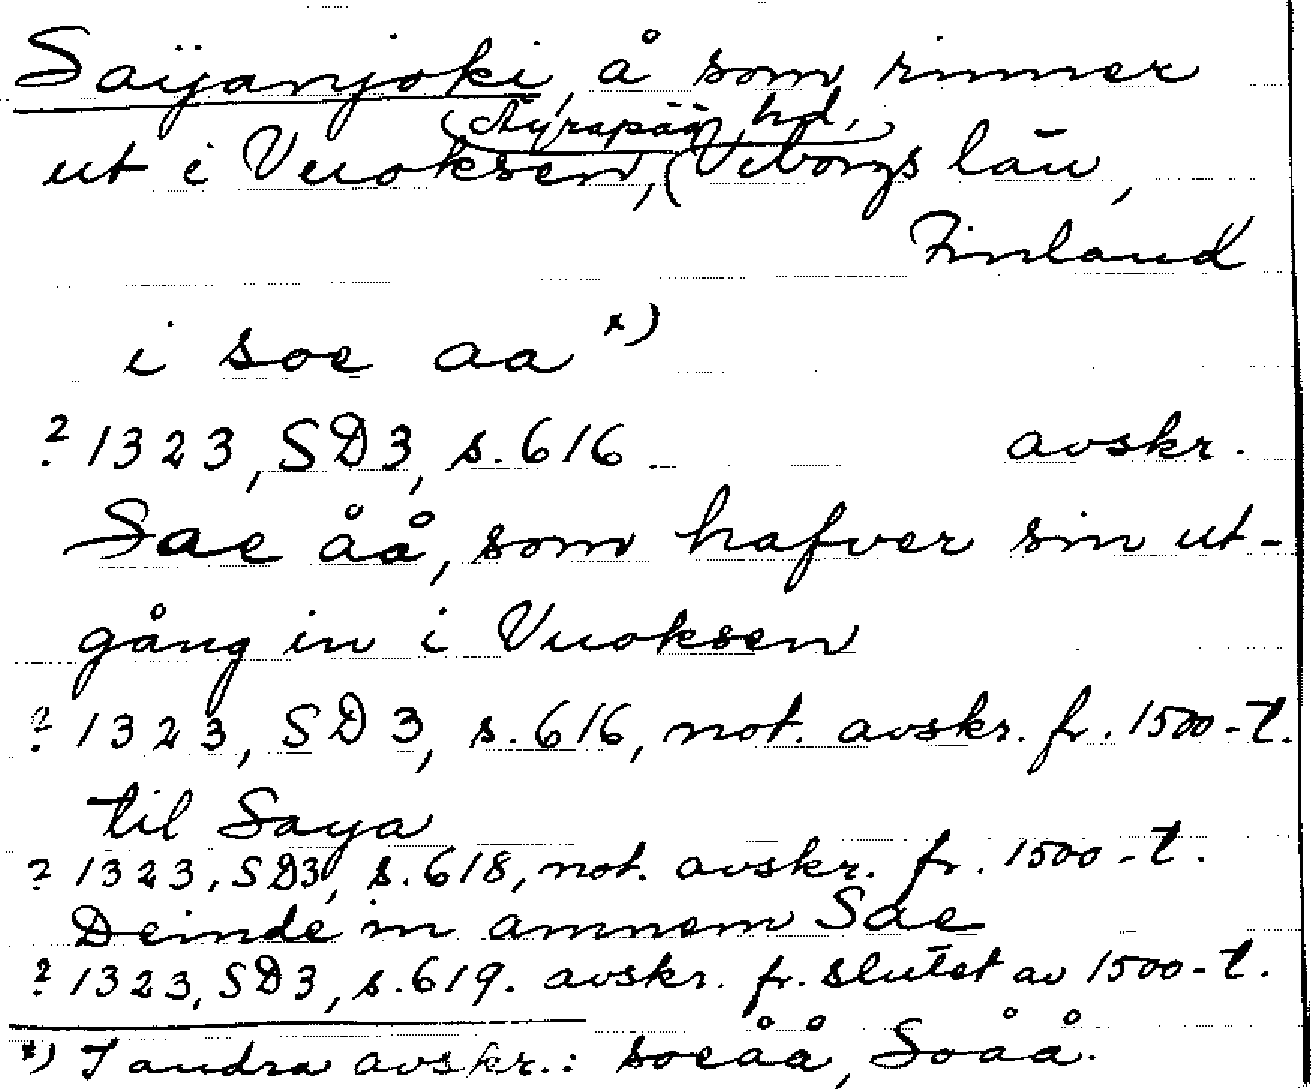 Saijanjoki, å som rinner
(Äyräpää hd.)
ut i Vuoksen, (Viborgs län,
Finland
i soe aa x)
? 1323, SD3, s. 616 avskr.
Sae åå, som hafver sin ut-
gång in i Vuoksen
? 1323, SD3, s. 616, not. avskr. fr. 1500-t.
til Saya
? 1323, SD3, s. 618, not. avskr. fr. 1500-t.
Deinde in amnem Sae
? 1323, SD3, s. 619. avskr. fr. slutet av 1500-t.
x) I andra avskr.: soeåå, Soåå.